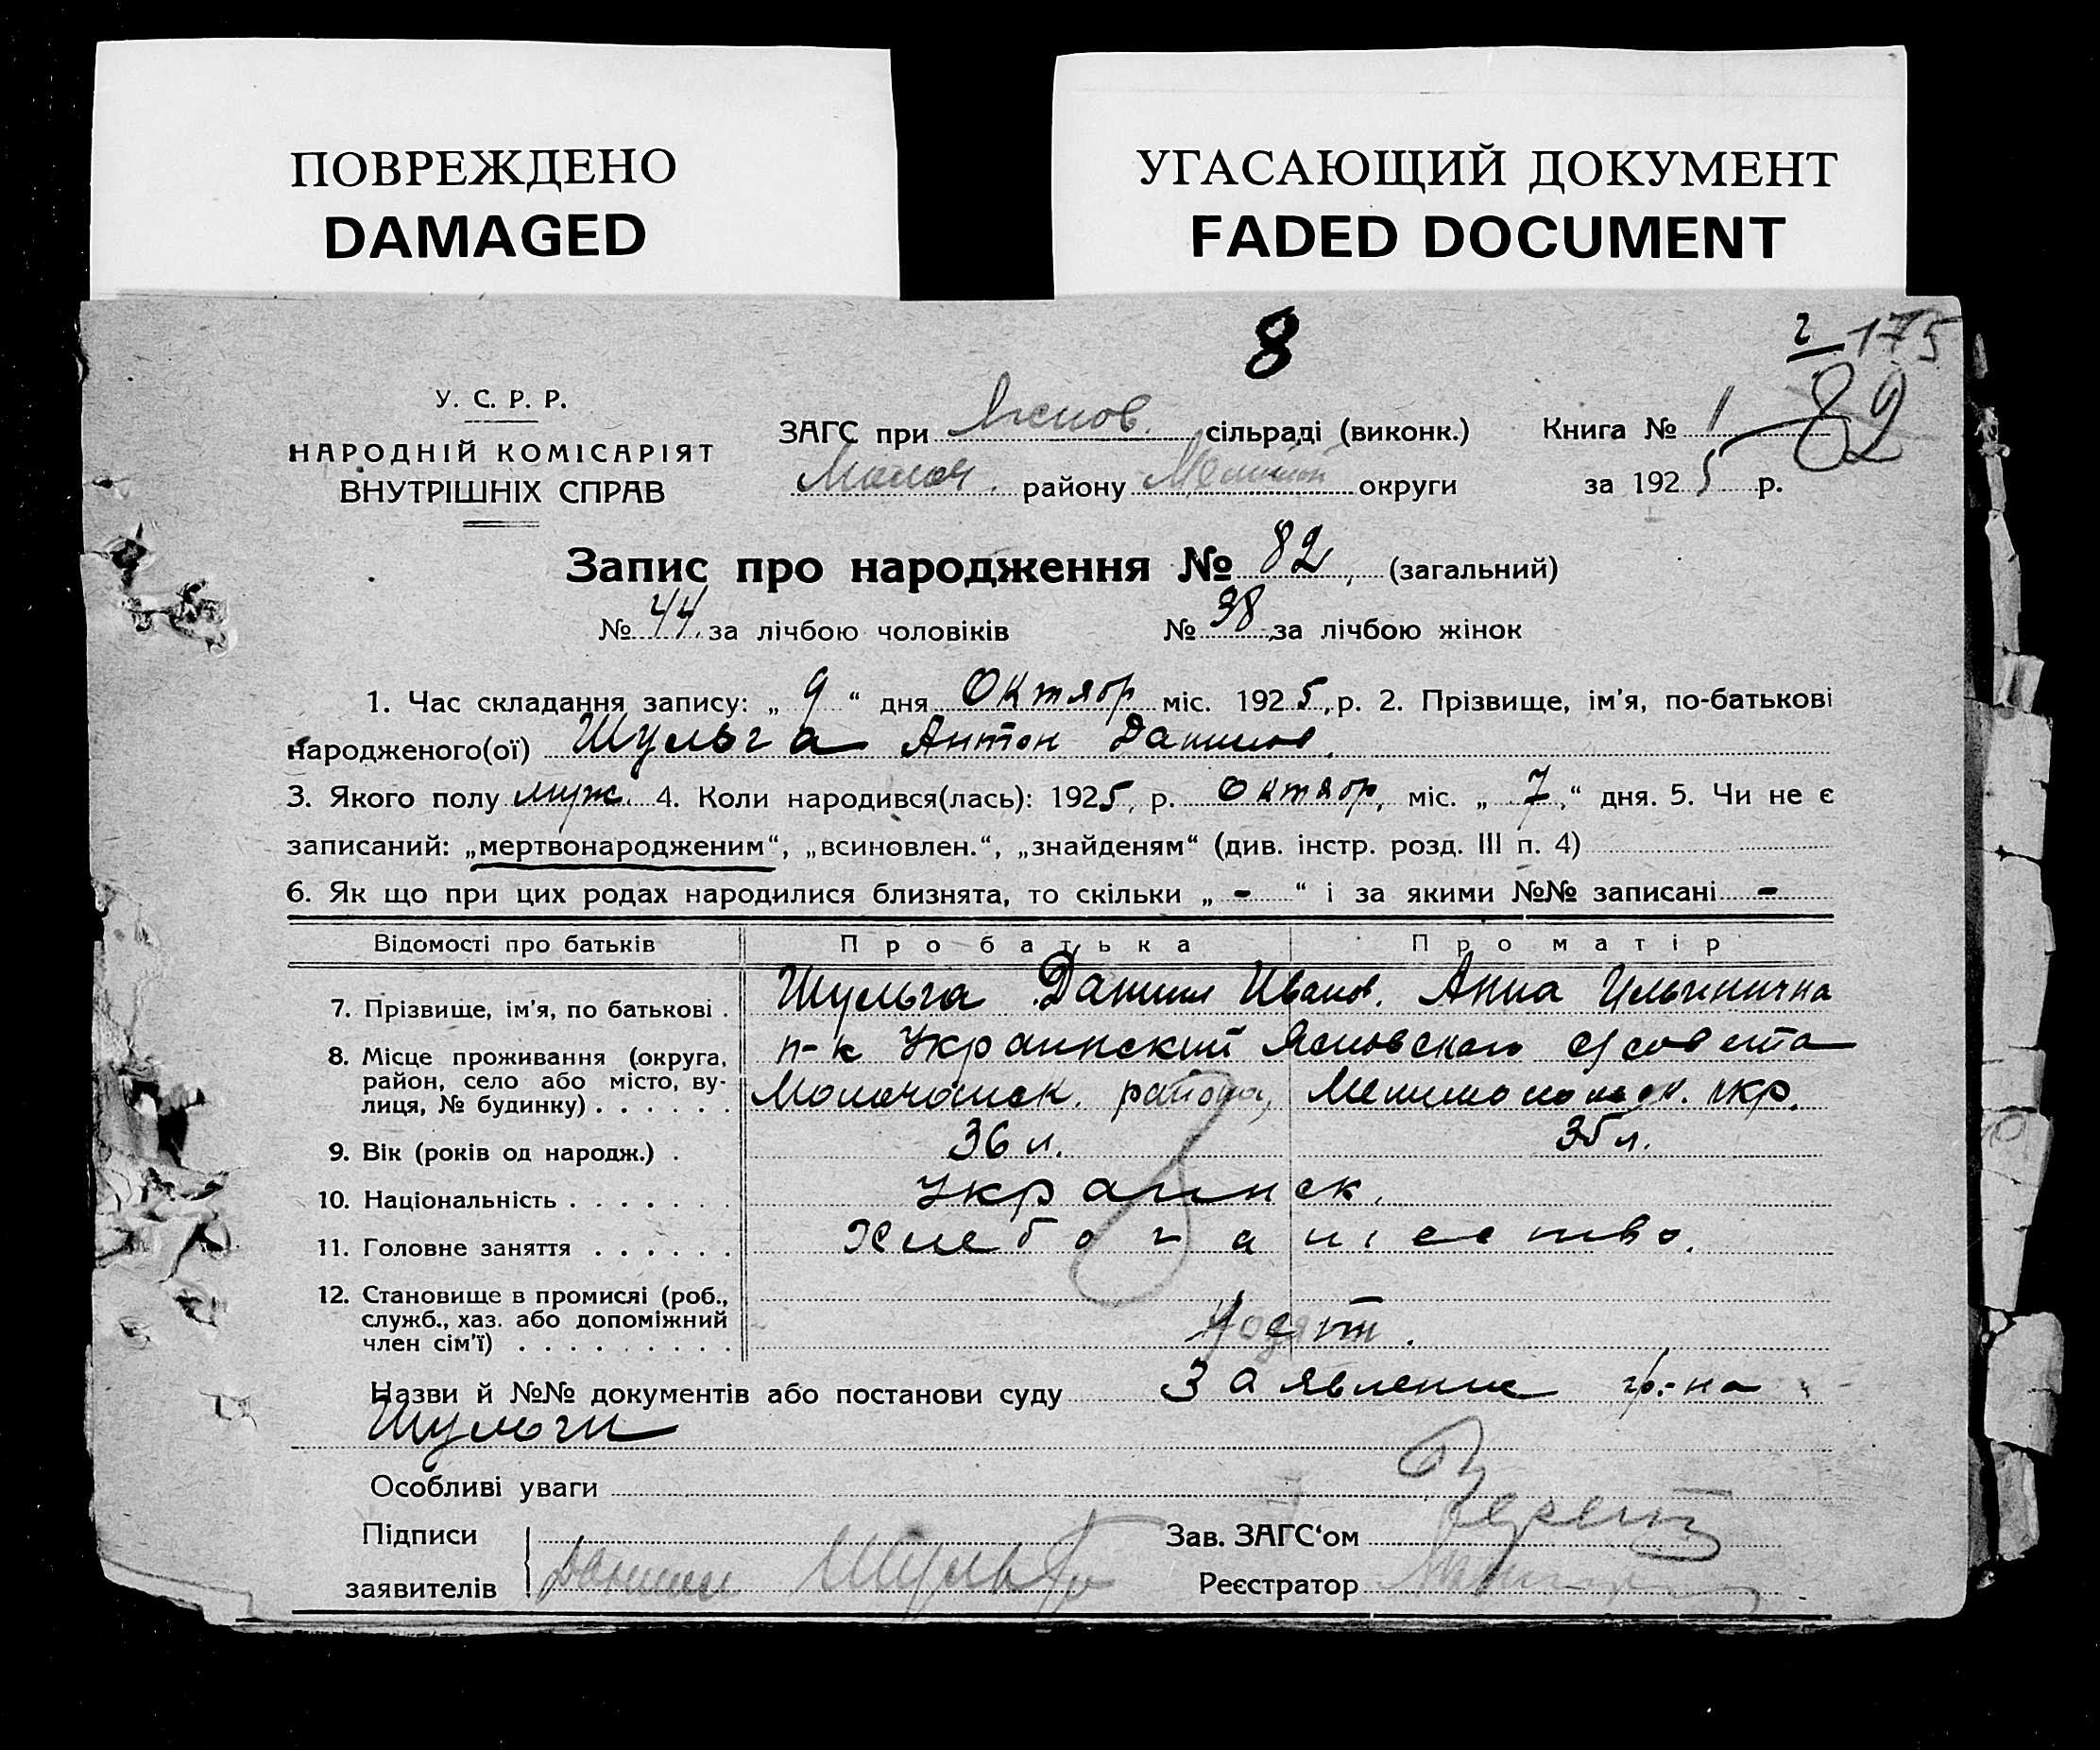 ПОВРЕЖДЕНО
DAMAGED
УГАСАЮЩИЙ ДОКУМЕНТ
FADED DOCUMENT
8
2 175
82
У. С. Р. Р.
НАРОДНІЙ КОМІСАРІЯТ
ВНУТРІШНІХ СПРАВ
ЗАГС при Яснов. сільраді (виконк.)
Молоч. району округи
Книга № 1
за 1925 р.
Запис про народження № 82 (загальний)
№ 44 за лічбою чоловіків № 38 за лічбою жінок
1. Час складання запису: „ 9 “ дня Октябр міс. 1925, р. 2. Прізвище, ім'я, по-батькові
народженого(ої) Шульга Антон Данилов.
3. Якого полу муж. 4. Коли народився(лась): 1925, р. Октябр, міс. „ 7, “ дня. 5. Чи не є
записаний: „мертвонародженим“, „всиновлен.“, „знайденям“ (див. інстр. розд. III п. 4)
6. Як що при цих родах народилися близнята, то скільки „ - “ і за якими №№ записані -
Відомості про батьків Про батька Про матір
7. Прізвище, ім'я, по батькові . Шульга Данил Иванов. Анна Ильинична
8. Місце проживання (округа, район, село або місто, вулиця, № будинку) . . . . . . п-к Украинский Ясновского с/совета
Молочанск. района, Мелитопольск. окр.
9. Вік (років од народж.) . 36 л. 35 л.
10. Національність . . . . . . . Украинск.
11. Головне заняття . . . . . . Хлебопашество.
12. Становище в промислі (роб.,
служб., хаз. або допоміжний
член сім'ї) . . . . . . . . .
Назви й №№ документів або постанови суду Заявление гр-на
Шульги
Особливі уваги
Підписи
заявителів Данил Шульга
Зав. ЗАГС‘ом
Реєстратор